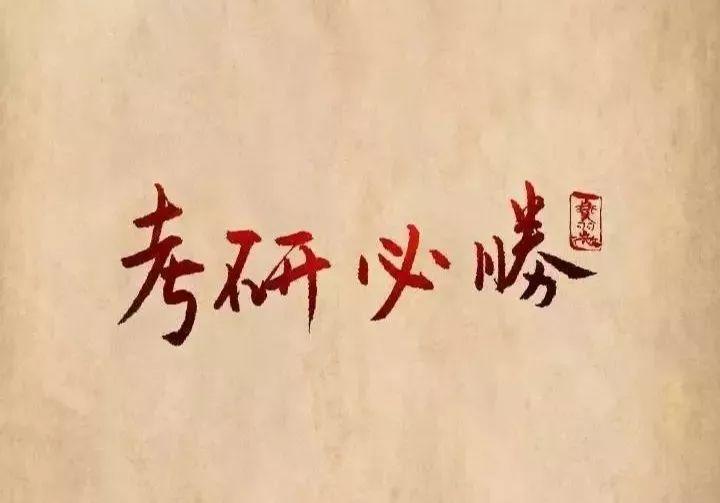 考研必勝